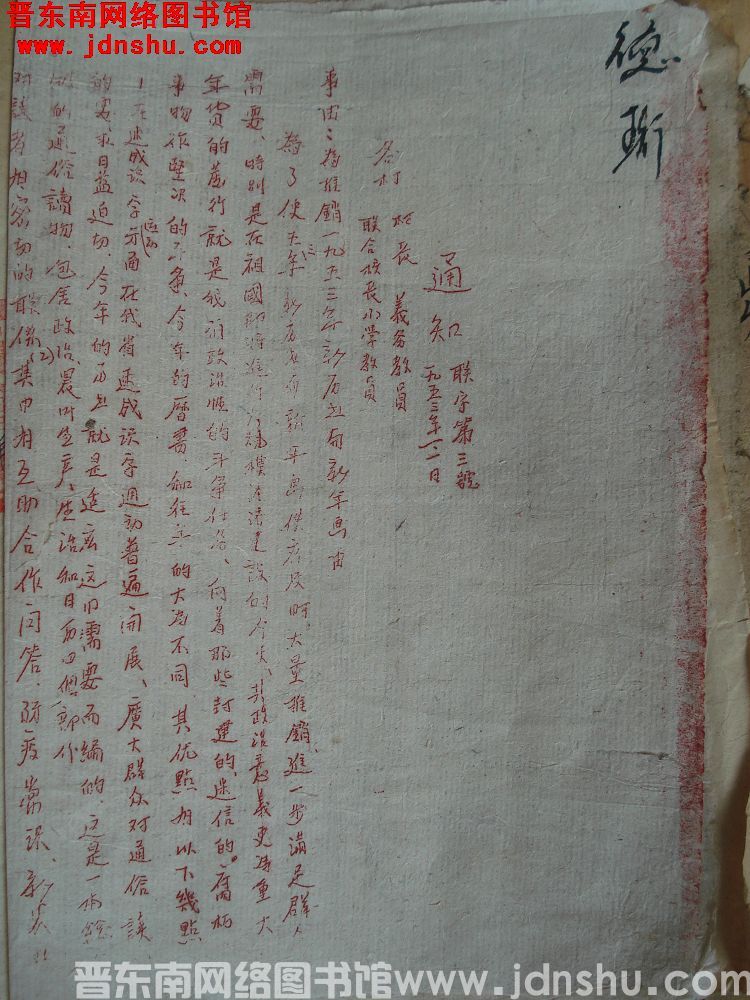 晋东南网络图书馆
www.jdnshu.com
德珩
通知 联字第三號
一九五三年一、二日
各村 村長 義务教員
联合校長 小学教員
事由：為推銷一九五三年新历书与新年画由
為了使五三年新历书与新年画供应及时大量推銷、進一步滿足群众
需要、特别是在祖國即将進行大規模经济建設的今天、其政治意義更為重大
年货的發行就是 政治性的斗争任务、向着那些封建的、迷信的、腐朽
事物作堅决的斗争、今年的曆書、和往年的大為不同、其优點有以下幾點
1在速成识字运动 在我省速成识字運动普遍開展、廣大群众对通俗讀
的要求日益迫切、今年的历书就是適应这一需要而编的、这是一本综
的通俗讀物、包含政治、農业生產、生活和日历四個部份
对讀者有密切的联系(2) 集由有互助合作问答、防疫常识、新
晋东南网络图书馆www.jdnshu.com